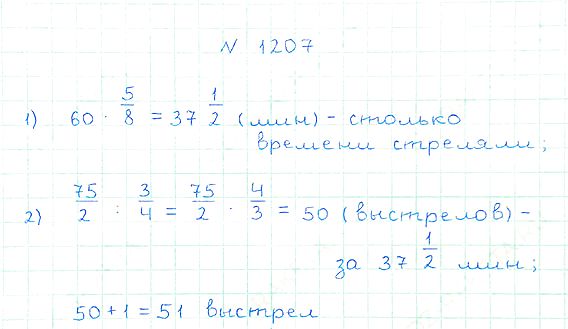 N 1207
1) 60 · 5/8 = 37 1/2 (мин) - столько
времени стреляли;
2) 75/2 : 3/4 = 75/2 · 4/3 = 50 (выстрелов) -
за 37 1/2 мин;
50 + 1 = 51 выстрел